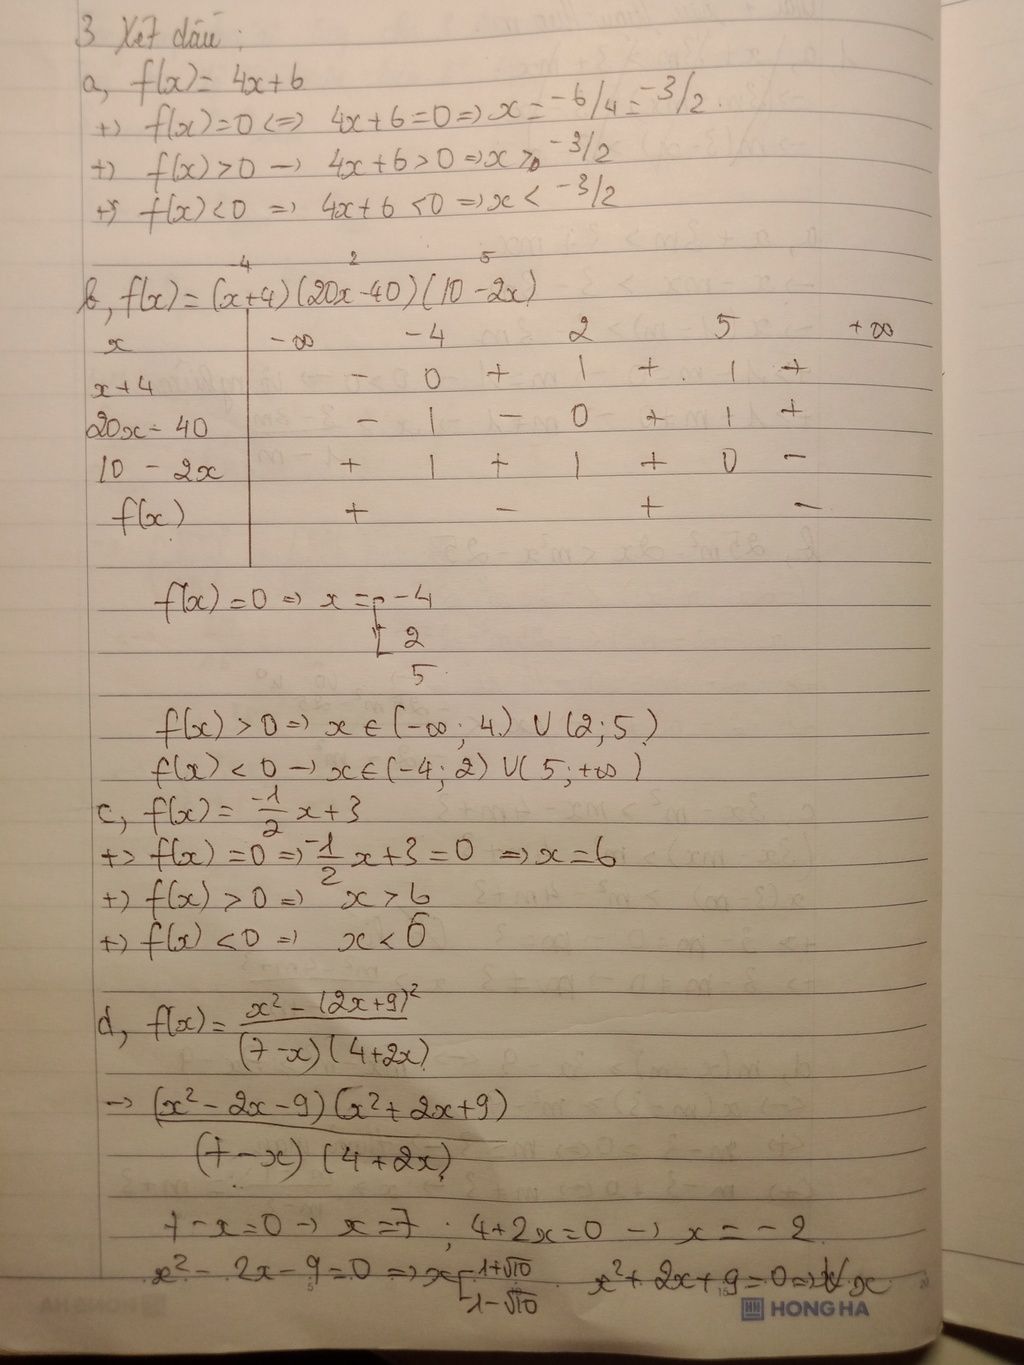 3 Xét dấu :
a, f(x) = 4x+6
+) f(x)=0 <=> 4x+6=0 => x = -6/4 = -3/2.
+) f(x) >0 → 4x+6 >0 => x > -3/2
+) f(x) <0 => 4x+6 <0 => x < -3/2
-4 2 5
b, f(x) = (x+4)(20x-40)(10-2x)
x -∞ -4 2 5 +∞
x+4 - 0 + | + | +
20x-40 - | - 0 + | +
10 - 2x + | + | + 0 -
f(x) + - + -
f(x) =0 => x = [ -4
2
5
f(x) >0 => x ∈ (-∞; 4) ∪ (2;5)
f(x) <0 → x ∈ (-4; 2) ∪ (5; +∞)
c, f(x) = -1/2 x+3
+) f(x) =0 => -1/2 x+3 =0 => x=6
+) f(x) >0 => x > 6
+) f(x) <0 => x < 6
d, f(x) = x² - (2x+9)² / (7-x)(4+2x)
→ (x² - 2x - 9)(x² + 2x + 9) / (7-x)(4+2x)
7-x=0 → x=7 ; 4+2x=0 → x = -2
x² - 2x - 9 =0 => x [ 1+√10 x² + 2x + 9 =0 => ∀x
1-√10
HONG HA